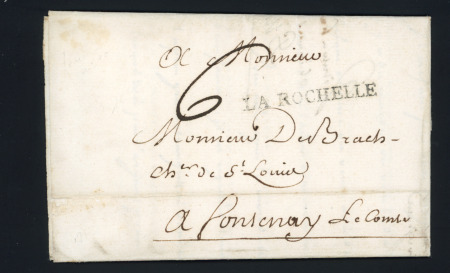 A Monsieur
6
LA ROCHELLE
Monsieur De Brach-
chr. de St Louis
A Fontenay Le Comte